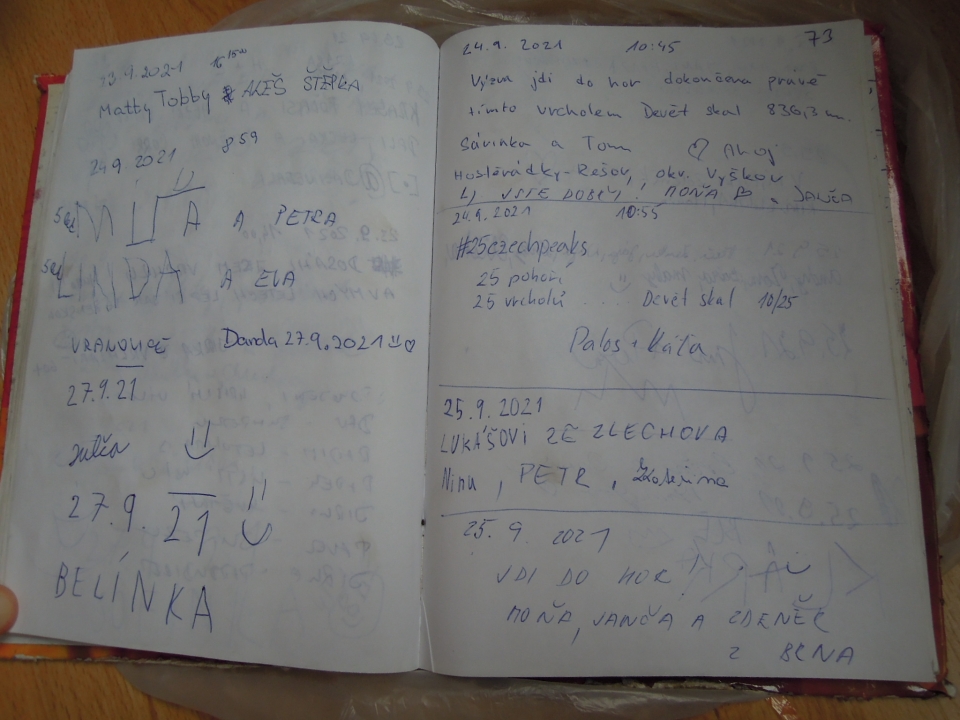 2021 16 15
Matty Tobby ALEŠ ŠTĚPKA
24.9 2021 8 59
MÍŤA A PETRA
LINDA A EVA
Danda 27.9.2021
27.9.21
Julča
27.9. 21
BELÍNKA
73
24.9. 2021 10:45
Výzva jdi do hor dokončena právě
tímto vrcholem Devět skal 836,3 m.
Sávinka a Tom Ahoj
Hostěrádky-Rešov, okr. Vyškov
JSTE DOBŘÍ, MOŇA JANČA
24.9. 2021 10:55
#25czechpeaks
25 pohoří
25 vrcholů . . . Devět skal 10/25
Palos + Káťa
25.9. 2021
LUKÁŠOVI ZE ZLECHOVA
Nina, PETR,
25. 9. 2021
JDI DO HOR!
MOŇA, JANČA A ZDENĚK
Z BRNA